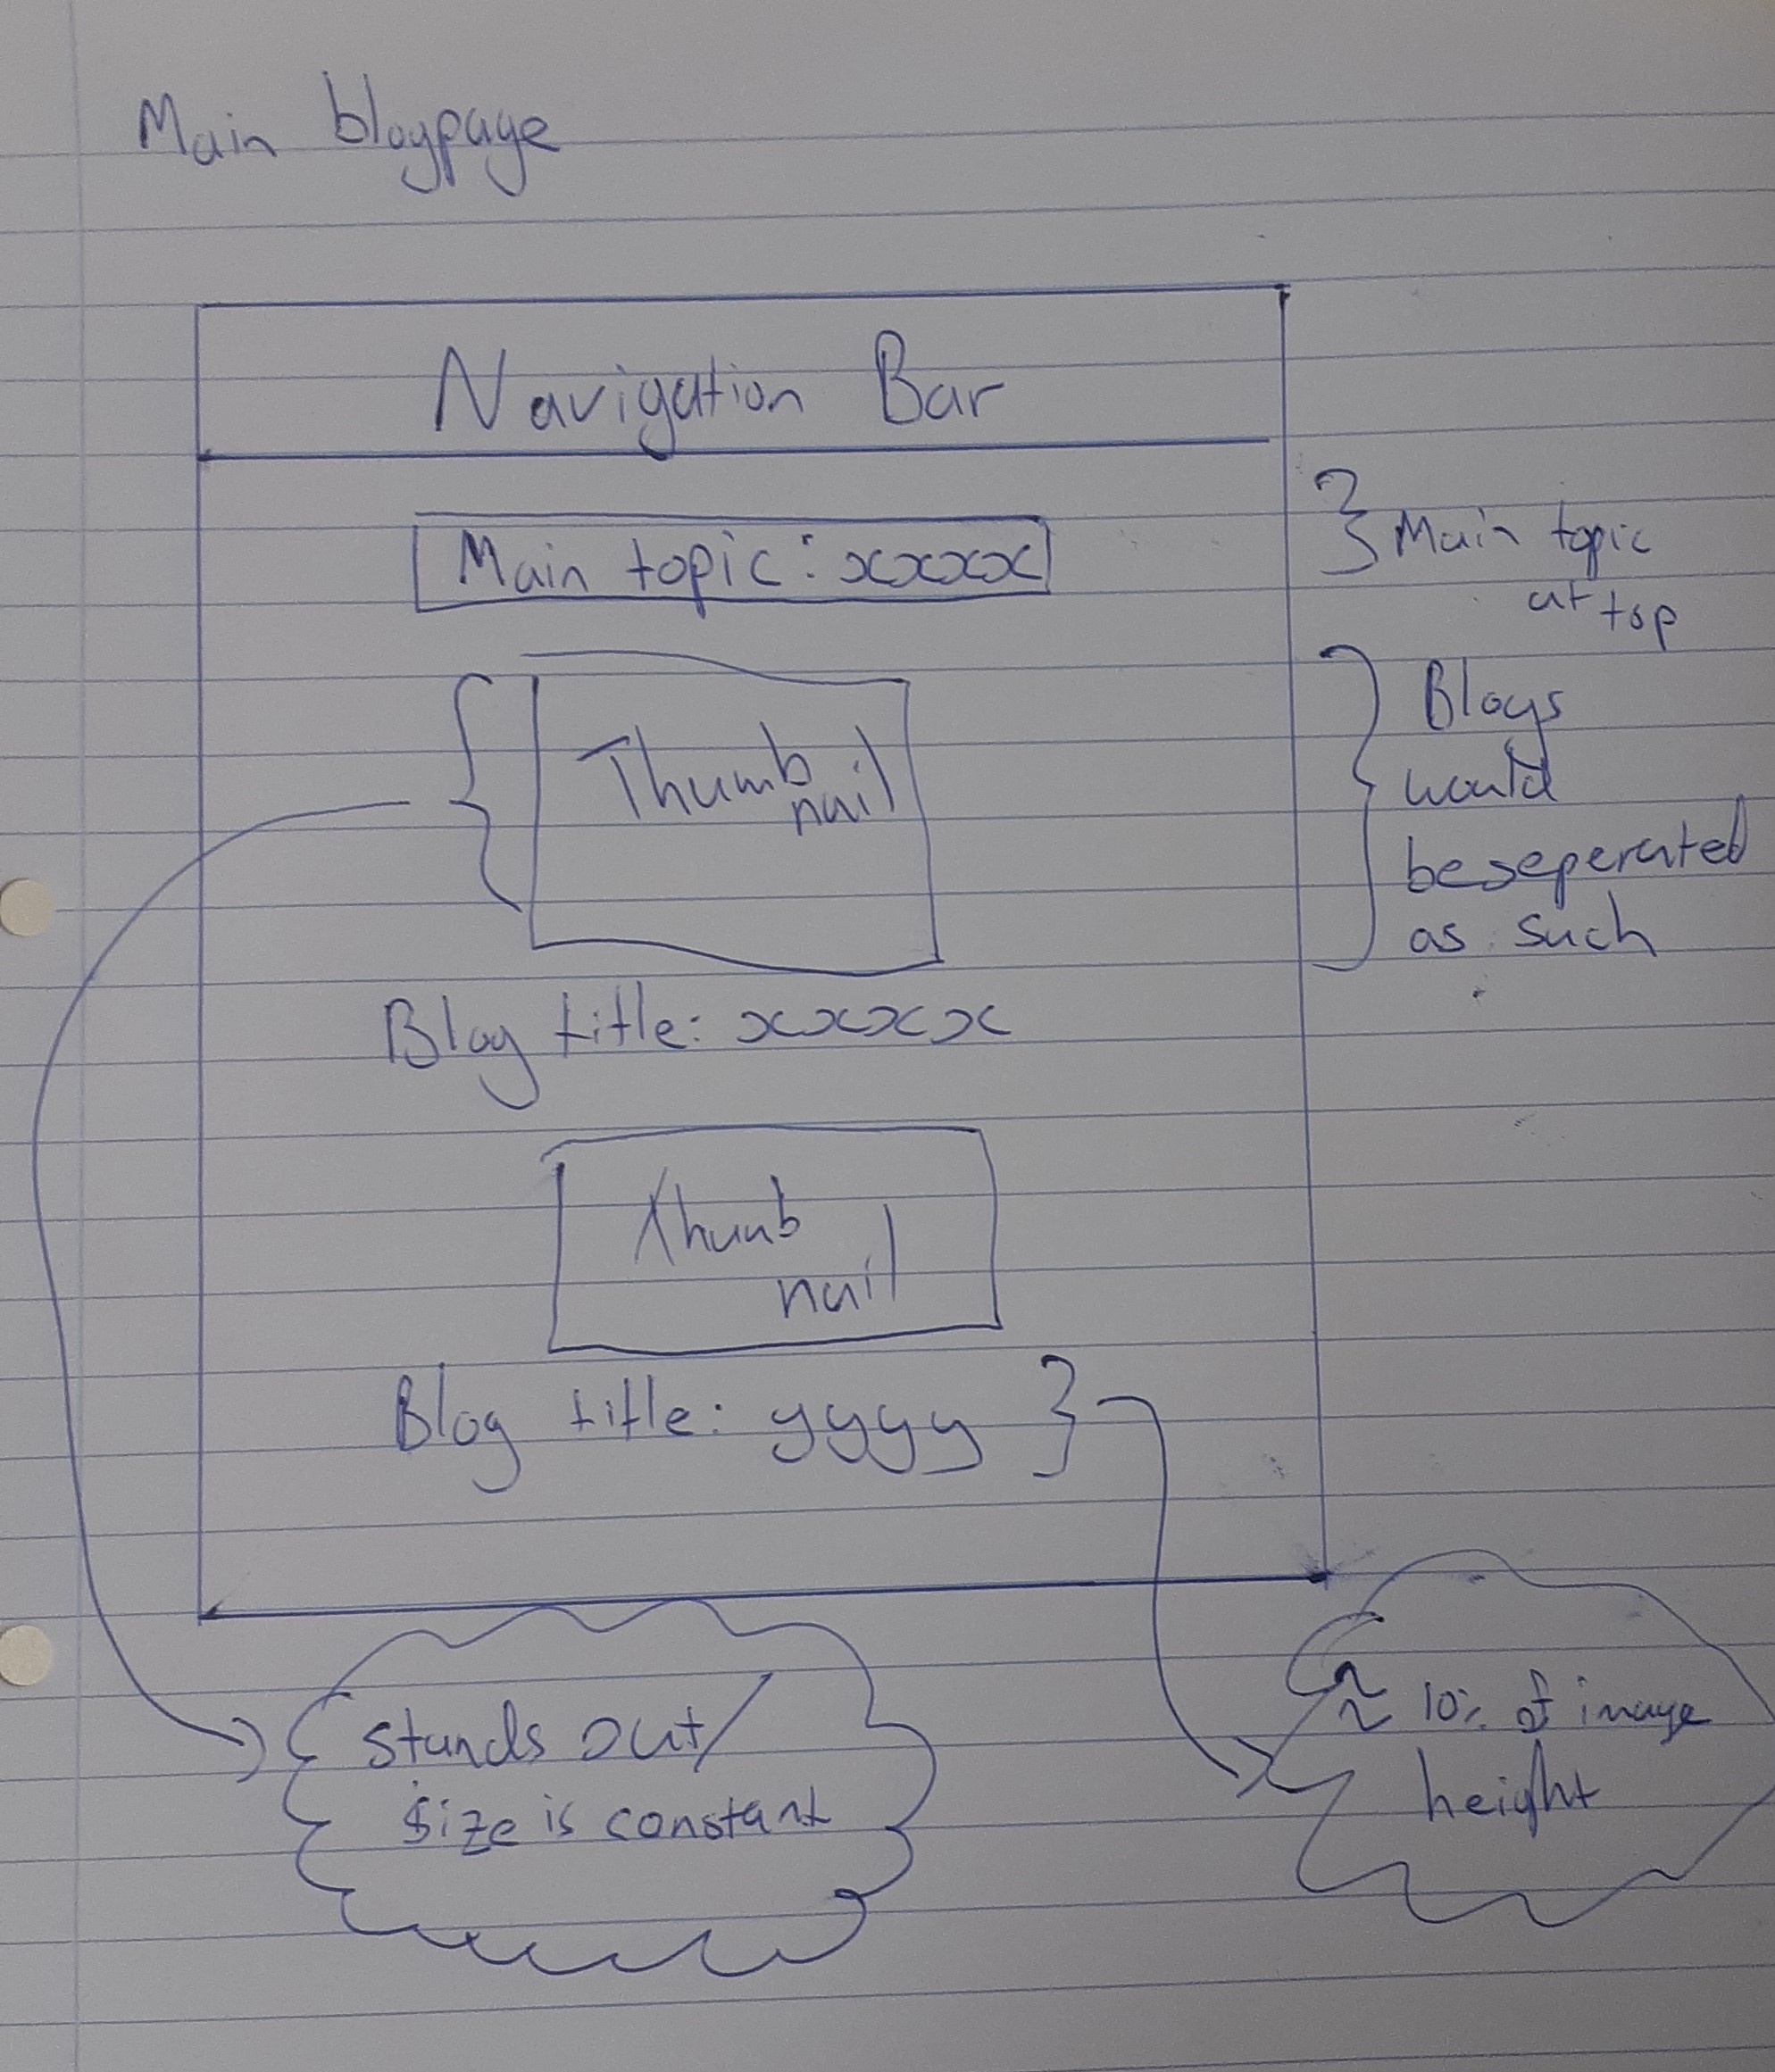 Main blogpage
Navigation Bar
Main topic: xxxx
Main topic
at top
Thumb
nail
Blogs
would
be seperated
as such
Blog title: xxxx
Thumb
nail
Blog title: yyyy
stands out/
size is constant
≈ 10% of image
height